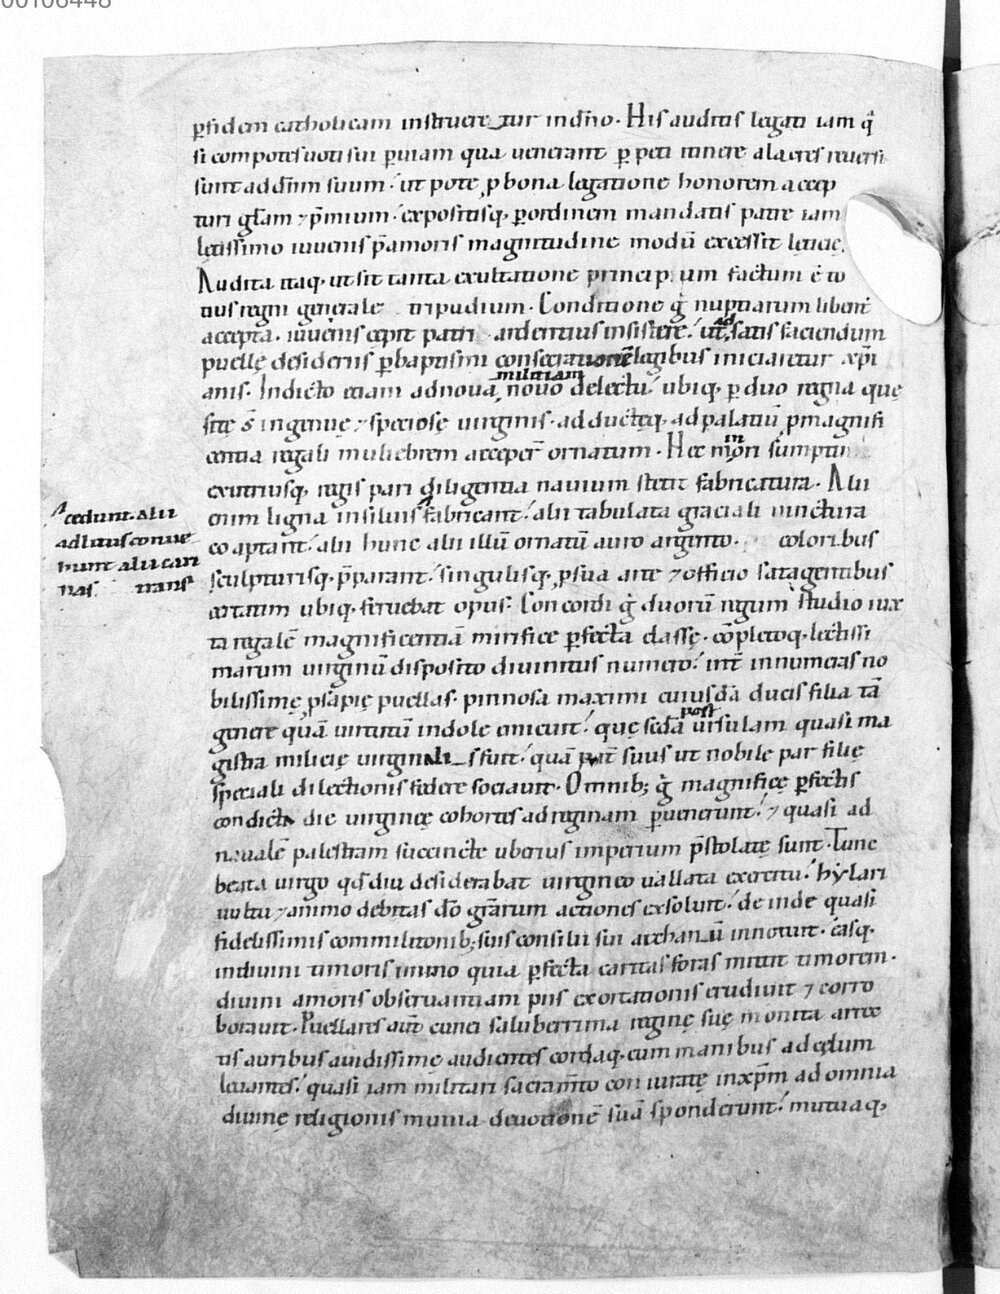 00106448
ꝑfidem catholicam instruere_tur indn̄io. His auditis legati iam q̄
si compotes uoti sui ꝑuiam qua uenerant ꝑpeti itinere alacres reuersi
sunt addn̄m suum. ut pote ꝓ bona legatione honorem accep
turi gl̄am ⁊ p̄mium. expositisq; ꝑordinem mandatis patre iam
lętissimo iuuenis p̄amoris magnitudine modū excessit lęticię.
Audita itaq; ut sit tanta exultatione principium factum ē to
tius regni generale tripudium. Conditione g̊ nuptiarum libent̄
accepta. iuuenis cepit patri ardentius insistere. ut, ad satis faciendum
puellę desideriis ꝑbaptismi consecrationē legibus iniciaretur xp̄i
anis. Indicto etiam adnouā, militiam nouo delectu ubiq; ꝑ duo regna que
sitę s̄ ingenuę ⁊ speciosę uirginis. adductęq; adpalatiū ꝓmagnifi
centia regali muliebrem acceper̄ ornatum. Hec int̄im ori sumptu
exutriusq; regis pari diligentia nauium stetit fabricatura. Alii
enim ligna insiluis fabricant. alii tabulata graciali iunctura
coaptant. alii hunc alii illū ornatū auro argento. coloribus
sculpturisq; p̄parant. singulisq; ꝓsua arte ⁊ officio satagentibus
certatim ubiq; feruebat opus. Concordi g̊ duorū regum studio iux
ta regalē magnificentiā mirifice ꝑfecta classę. cōpletoq; lectissi
marum uirginū disposito diuinitus numero. int̄ innumeras no
bilissimę ꝓsapię puellas. pinnosa maximi cuiusdā ducis filia tā
genere quā uirtutū indole emicuit. quę sedā post ursulam quasi ma
gistra milicię uirginali_s fuit. quā pat̄ suus ut nobile par filię
speciali dilectionis federe sociauit. Omnib; g̊ magnificę ꝑfectis
condicta die uirginęę cohortes adreginam ꝑuenerunt. ⁊ quasi ad
naualē palestram succincte uberius imperium p̄stolatę sunt. Tunc
beata uirgo qd̄ diu desiderabat uirgineo uallata exercitu. hylari
uultu ⁊ animo debitas dō gr̄arum actiones exsoluit. deinde quasi
fidelissimis commilitonib; suis consilii sui archanū innotuit. easq;
indiuini timoris immo quia ꝑfecta caritas foras mittit timorem.
diuini amoris obseruantiam piis exortationis erudiuit ⁊ corro
borauit. Puellares aut̄ cunei saluberrima reginę suę monita arrec
tis auribus auidissimę audientes cordaq; cum manibus adcęlum
leuantes. quasi iam militari sacram̄to coniuratę inxp̄m ad omnia
diuinę religionis munia deuotionē suā sponderunt. mutuaq;
Accedunt. alii
adlitus conue
hunt alii cari
nas. transt